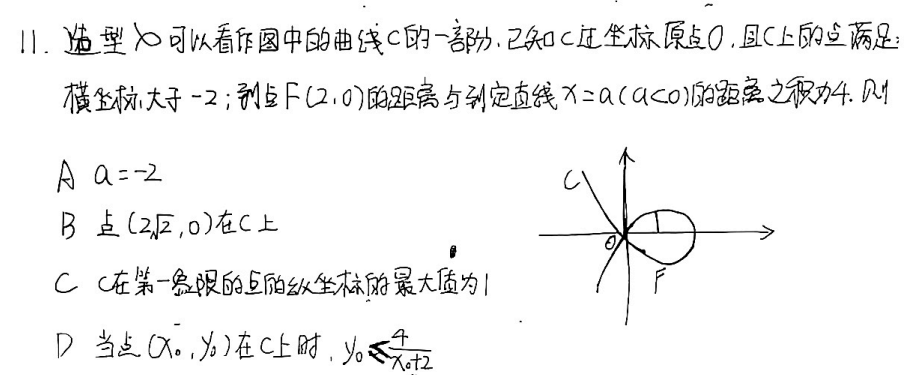 11. 造型∝可以看作图中的曲线C的一部分.已知C过坐标原点O.且C上的点满足:
横坐标大于-2;到点F(2,0)的距离与到定直线x=a(a<0)的距离之积为4.则
A a=-2
B 点(2√2,0)在C上
C C在第一象限的点的纵坐标的最大值为1
D 当点(x₀,y₀)在C上时,y₀≤4/(x₀+2)
C
O
F